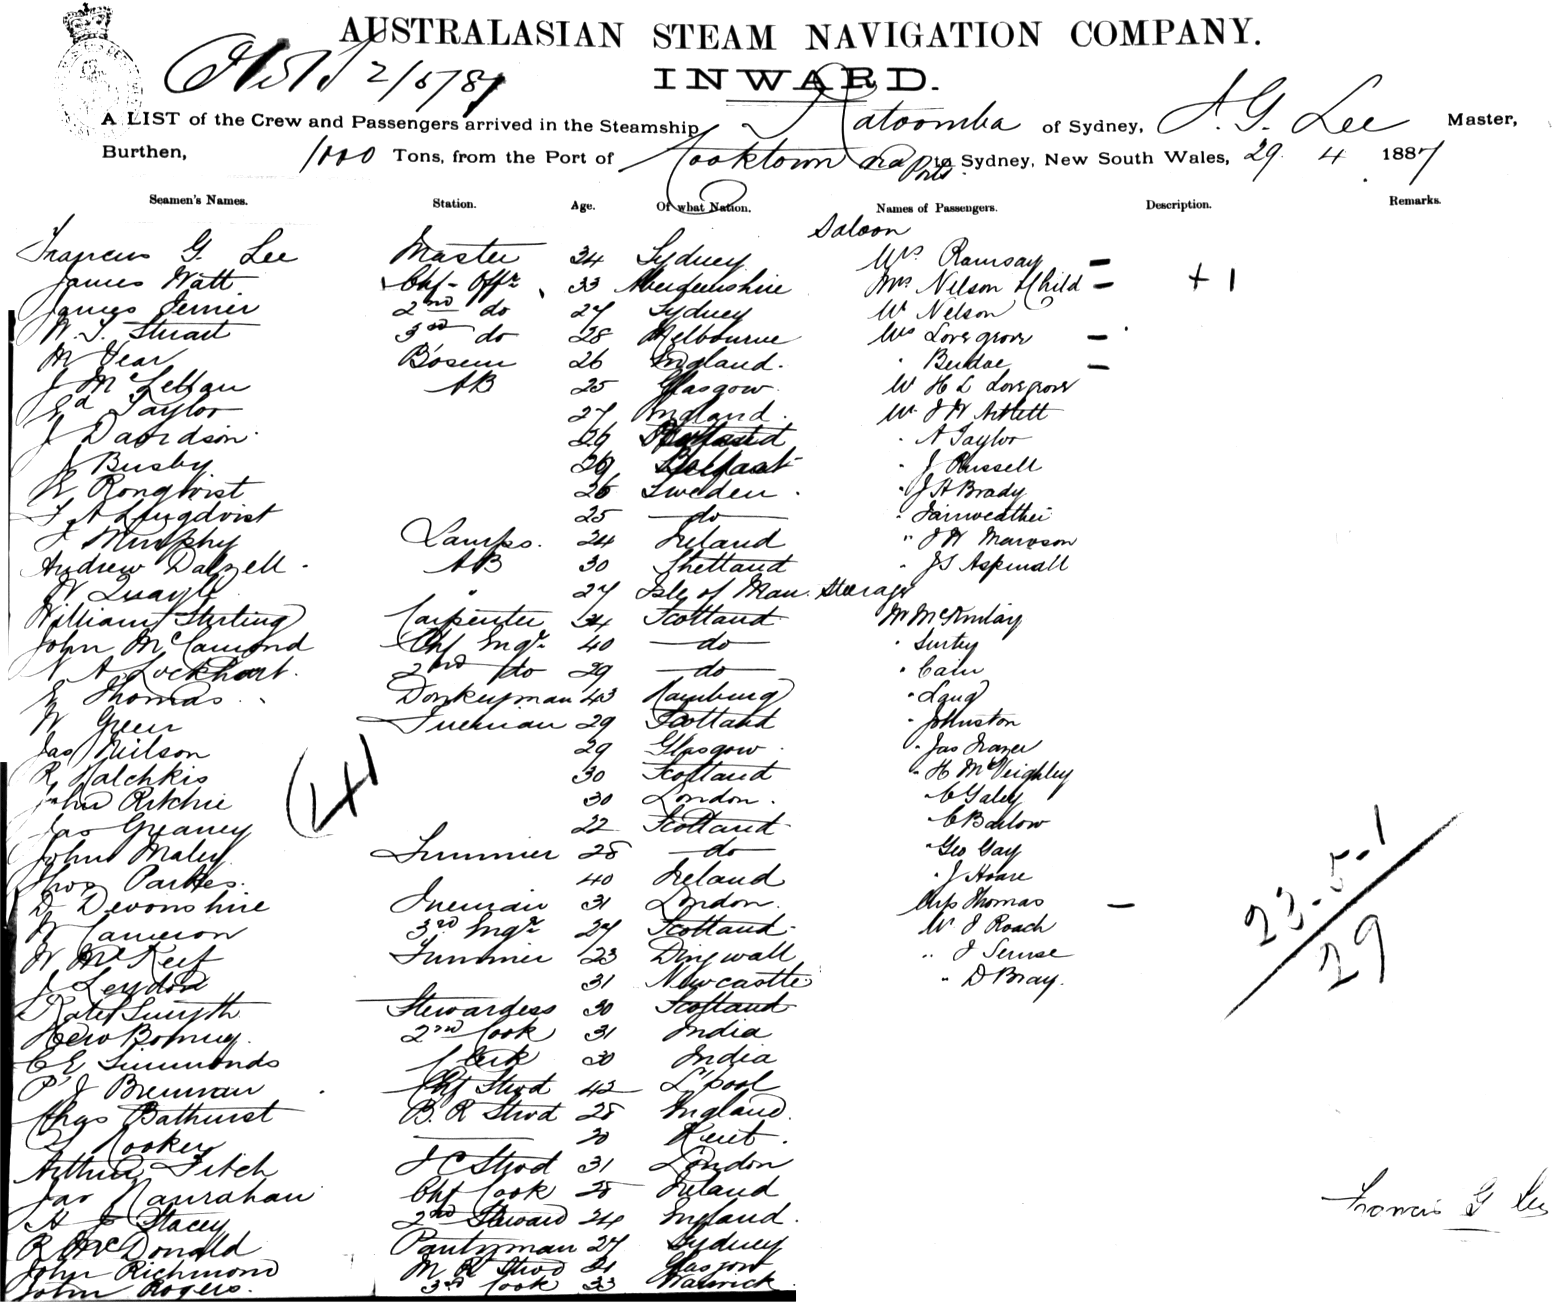 AUSTRALASIAN STEAM NAVIGATION COMPANY.
2/5/87
INWARD.
A LIST of the Crew and Passengers arrived in the Steamship Katoomba of Sydney, F. G. Lee Master,
Burthen, 1000 Tons, from the Port of Cooktown and Ports to Sydney, New South Wales, 29 4 1887
Seamen's Names. Station. Age. Of what Nation. Names of Passengers. Description. Remarks.
Saloon
Francis G. Lee Master 34 Sydney Mrs Ramsay –
James Watt Chf - Offr 33 Aberdeenshire Mrs Nelson & Child – + 1
James 2nd do 27 Sydney Mr Nelson
W. T. Stuart 3rd do 28 Melbourne Mrs Lovegrove –
W Year Bosun 26 England. " –
J McLellan AB 25 Glasgow Mr H L Lovegrove
Ed Taylor 27 England. Mr J W
J Davidson. 26 " A Taylor
J Busby 29 Belfast " J Russell
E Ronqvist 26 Sweden. " J H Brady
F A Lungdvist 25 do " Fairweather
J Murphy Lamps. 24 Ireland " J W
Andrew Dalzell. AB 30 Shetland " J S Aspinall
W Quayle " 27 Isle of Man. Steerage
William Stirling Carpenter 34 Scotland Mr McKinlay
John McCamond Chf Engr 40 do "
N A Lockhart. 2nd do 29 do " Cain
E Thomas. Donkeyman 43 Hamburg " Lang
W Green Fireman 29 Scotland " Johnston
Jas Neilson 29 Glasgow " Jas Frazer
R Halchkis 30 Scotland " H McVeighley
John Ritchie 30 London. " C Galey
(41
Jas Greaney 22 Scotland " C Barlow
John Maley Trimmer 28 do " Geo Gay
Thos Parkes. 40 Ireland " J Hoare
D Devonshire Fireman 31 London. Mrs Thomas –
W Cameron 3rd Engr 27 Scotland Mr J Roach
W McKeef Trimmer 23 Dingwall " J
J Leydon 31 Newcastle " D Bray.
23-5-1
29
Kate Smyth Stewardess 30 Scotland
2nd Cook 31 India
C E Simmonds Clerk 30 India
P J Brennan Chf Stwd 42 L'pool
Chas Bathurst B. R Stwd 28 England
Cooker 30 Kent.
Arthur Fitch F C Stwd 31 London
Jas Hanrahan Chf Cook 28 Ireland
H J Stacey 2nd Steward 24 England.
R McDonald Pantryman 27 Sydney
John Richmond M R Stwd 21 Glasgow
John Rogers. 3rd Cook 33 Warwick
Francis G Lee